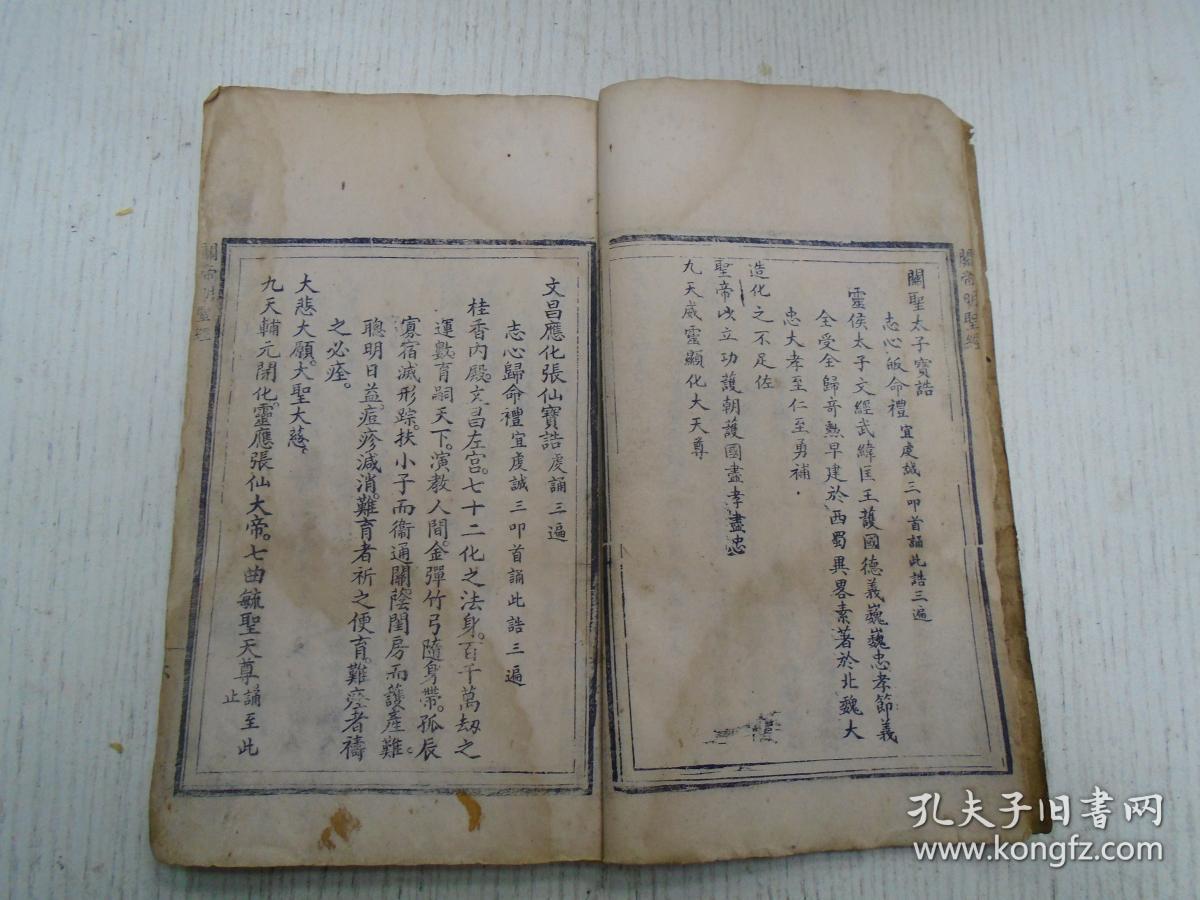 關聖太子寶誥
志心皈命禮宜虔誠三叩首誦此誥三遍
靈侯太子文經武緯匡王護國德義巍巍忠孝節義
全受全歸奇熱早建於西蜀異畧素著於北魏大
忠大孝至仁至勇補
造化之不足佐
聖帝以立功護朝護國盡孝盡忠
九天威靈顯化大天尊
關帝明聖經
文昌應化張仙寶誥虔誦三遍
志心歸命禮宜虔誠三叩首誦此誥三遍
桂香內殿。文昌左宫。七十二化之法身。百千萬劫之
運數。育嗣天下。演教人間。金彈竹弓隨身帶。孤辰
寡宿滅形踪。扶小子而衞通關。蔭閨房而護產難。
聰明日益。痘疹減消。難育者祈之便育。難痊者禱
之必痊。
大悲大願。大聖大慈。
九天輔元開化。靈應張仙大帝。七曲毓聖天尊誦至此
止
關帝明聖經
孔夫子旧書网
www.kongfz.com